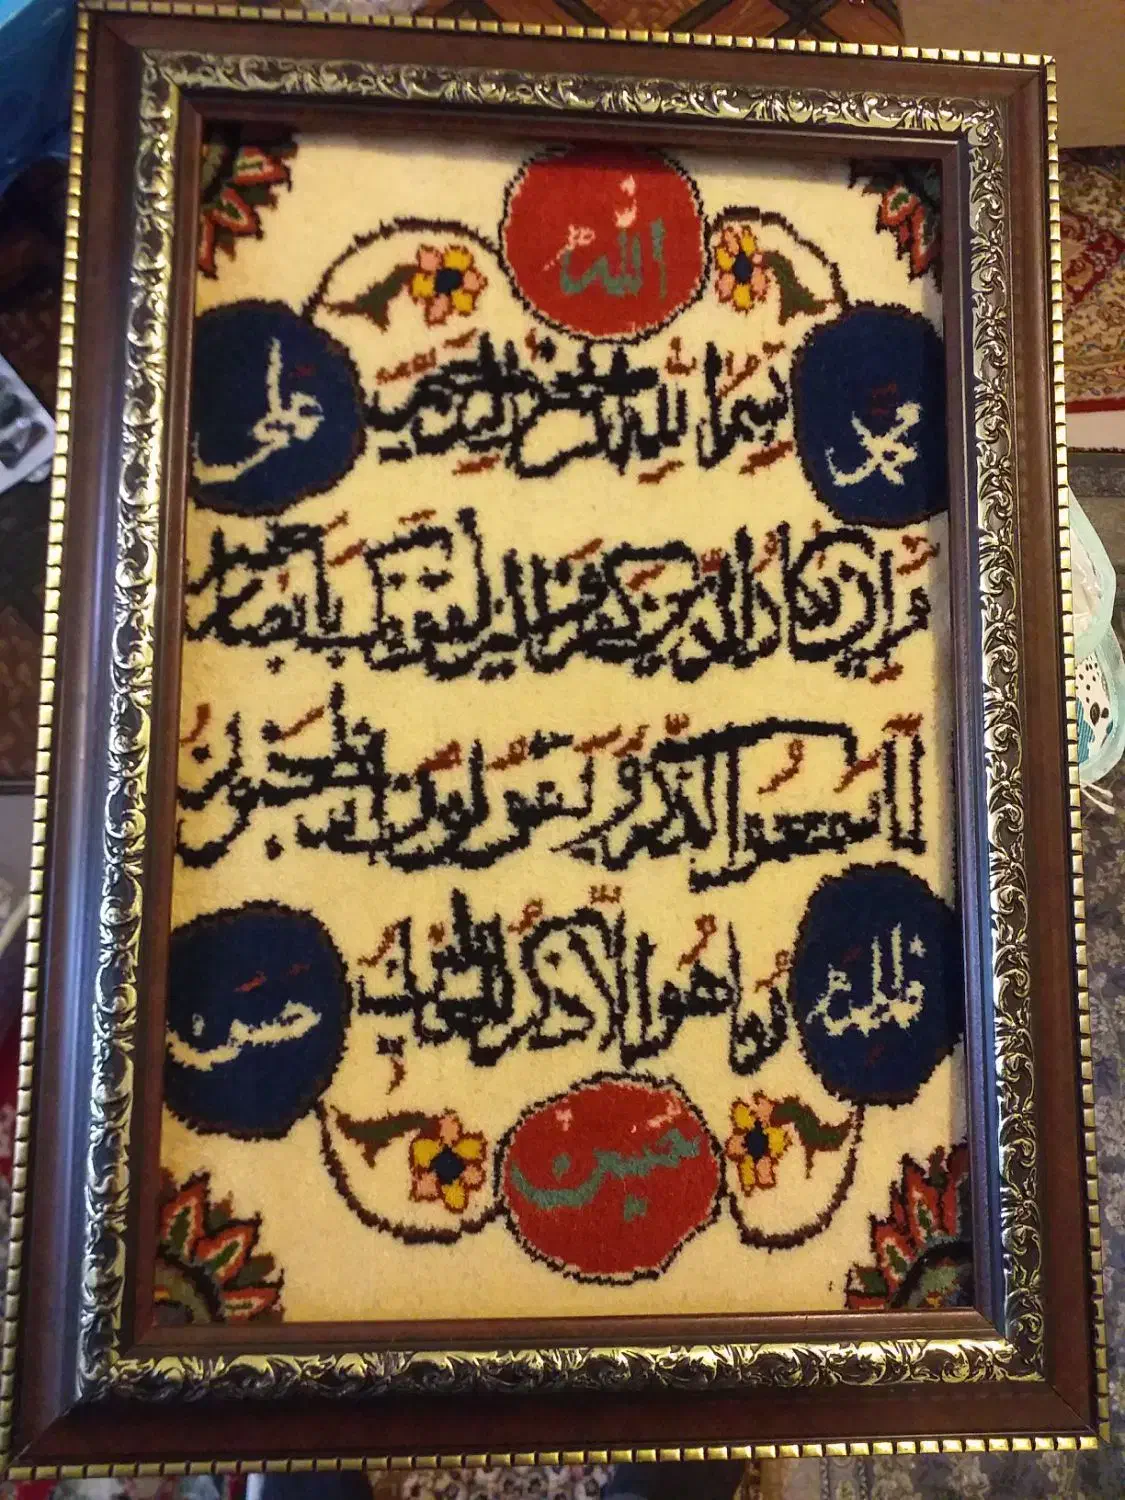 الله
محمد
علی
بسم الله الرحمن الرحیم
و ان یکاد الذین کفروا لیزلقونک بابصارهم
لما سمعوا الذکر و یقولون انه لمجنون
و ما هو الا ذکر للعالمین
فاطمه
حسن
حسین